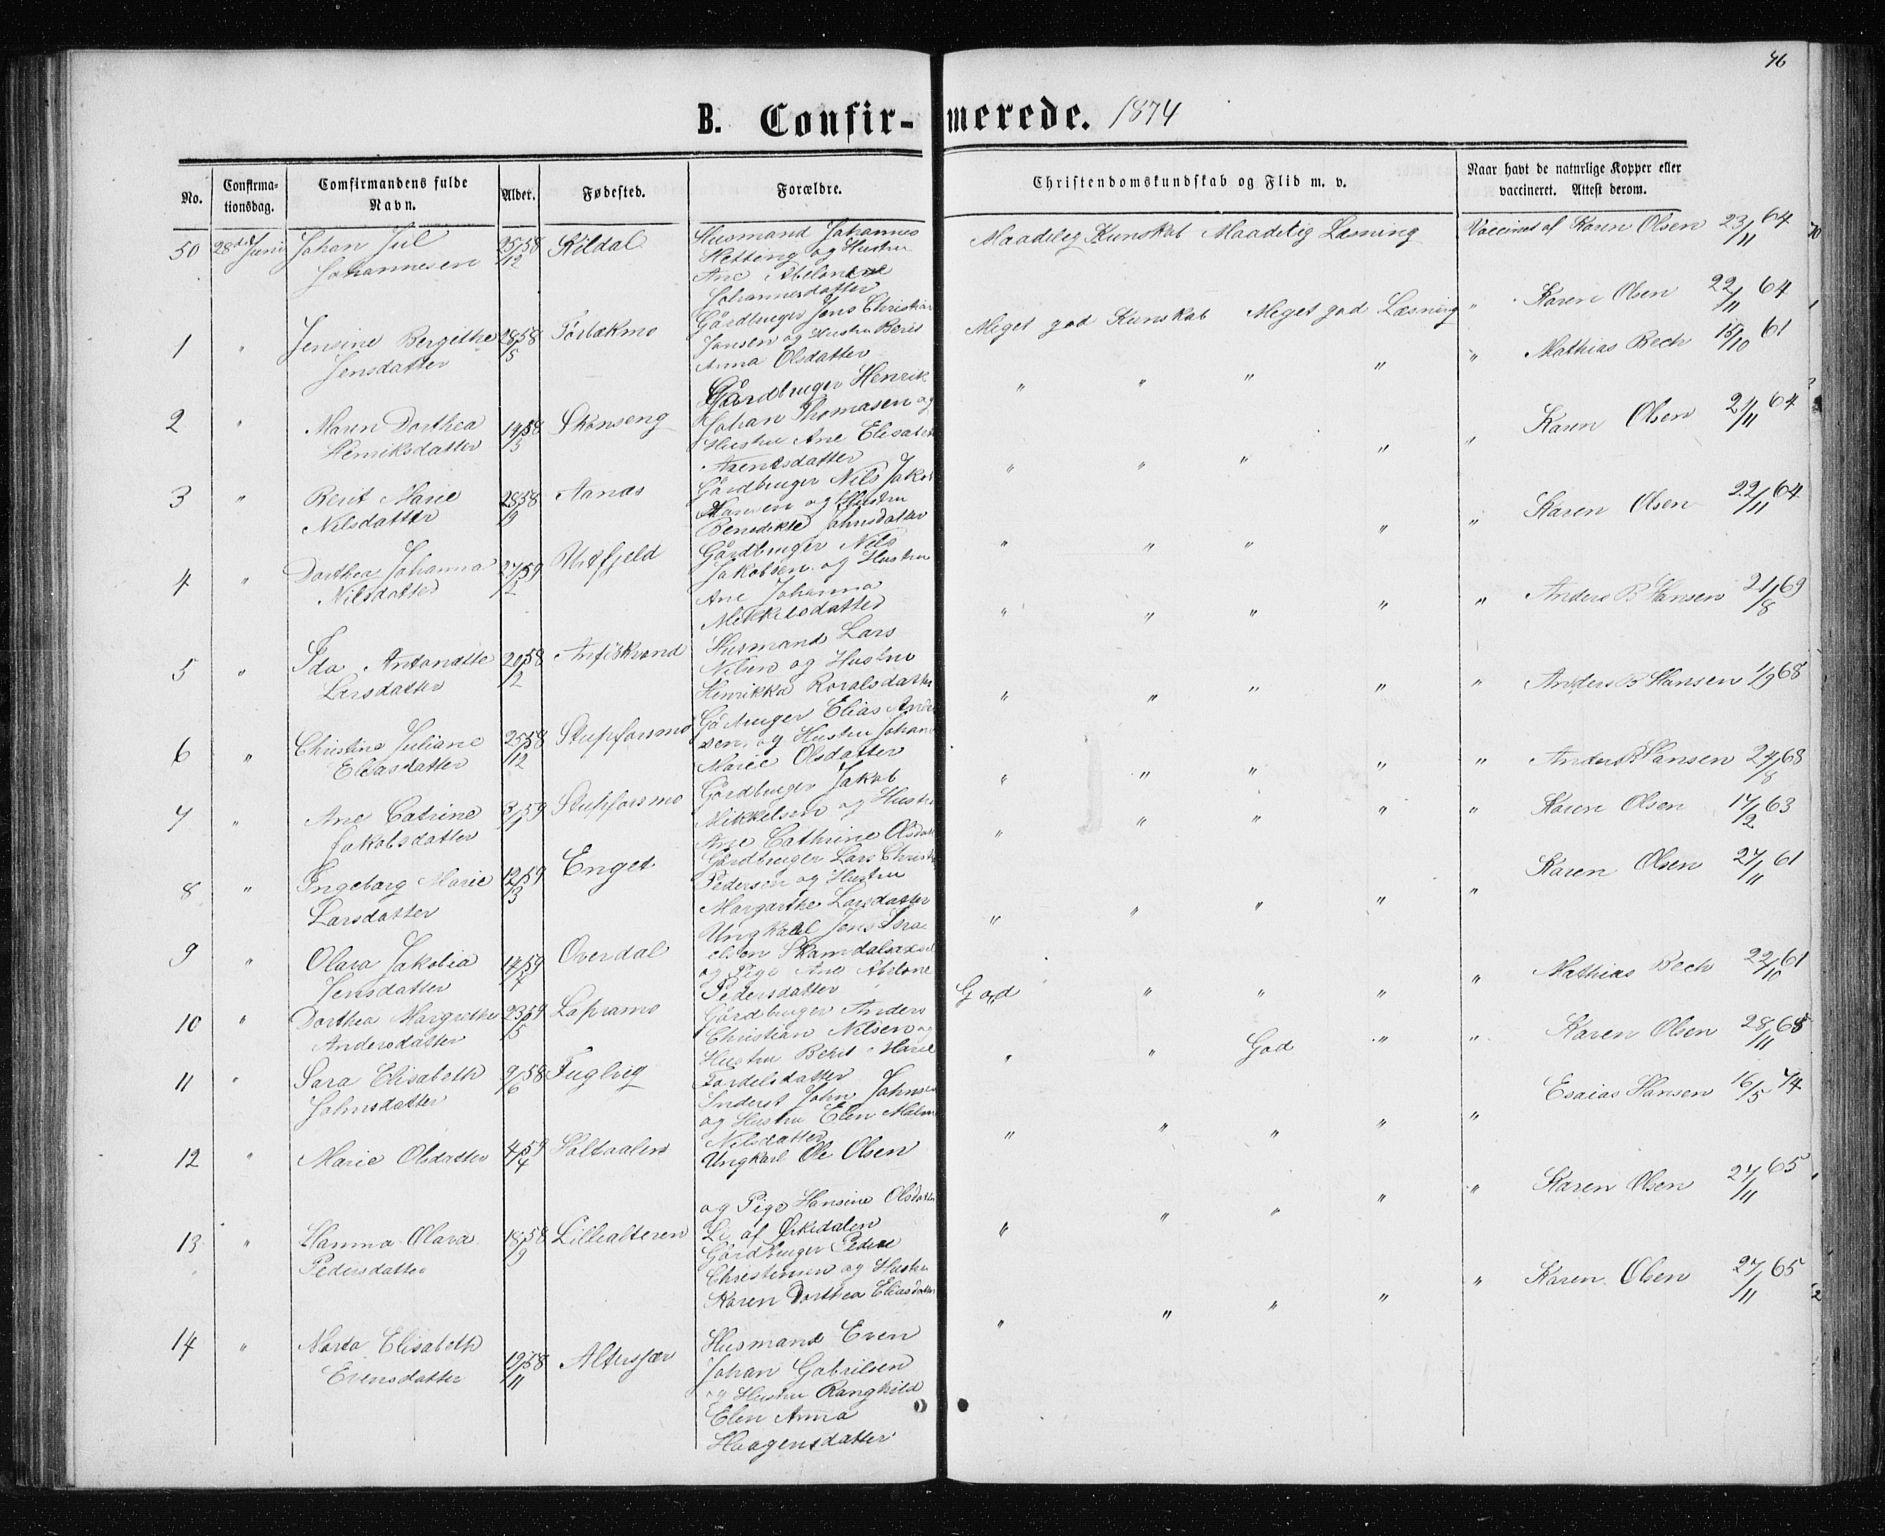 46
B. Confir-merede. 1874
No.
Confirma-tionsdag.
Comfirmandens fulde Navn.
Alder.
Fødested.
Forældre.
Christendomskundskab og Flid m. v.
Naar havt de naturlige Kopper eller vaccineret. Attest derom.
50 28de Juni Johan Jul 25/12 58 Husmand Johannes Maadelig Kunskab Maadelig Læsning Vaccineret af Karen Olsen 23/11 64
Johannesen og Hustru
Ane
Johannesdatter
1 " Jensine Bergithe 28/5 58 Gårdbruger Jens Christian Meget god Kunskab Meget god Læsning " Karen Olsen 22/11 64
Jensdatter Jensen og Hustru Berit
Anna Olsdatter
" " " " " Mathias Bech 15/10 61
2 " Maren Dorthea 14/3 58 Skonseng Gårdbruger Henrik
Henriksdatter Johan Thomasen og
Hustru Ane Elisabeth
Arentsdatter
" " " " " Karen Olsen 21/11 64
3 " Berit Marie 28/9 58 Aanæs Gårdbruger Nils Jakob
Nilsdatter Hansen og Hustru
Benedikte Johnsdatter
" " " " " Karen Olsen 22/11 64
4 " Dorthea Johanna 27/2 59 Gårdbruger Nils
Nilsdatter Jakobsen og Hustru
Ane Johanna
Mikkelsdatter
" " " " " Anders B Hansen 21/8 69
5 " Ida Antonette 20/12 58 Husmand Lars
Larsdatter Nilsen og Hustru
Henrikka
" " " " " Anders B Hansen 1/9 68
6 " Christine Juliane 25/12 58 Stupforsmo Gårdbruger Elias Andersen og Hustru Johan
Eliasdatter Marie Olsdatter
" " " " " Anders B Hansen 24/8 68
7 " Ane Catrine 3/1 59 Stupforsmo Gårdbruger Jakob
Jakobsdatter Mikkelsen og Hustru
Ane Cathrine Olsdatter
" " " " " Karen Olsen 17/2 63
8 " Ingeborg Marie 12/3 59 Enget Gårdbruger Lars Christ
Larsdatter Pedersen og Hustru
Margarthe Larsdatter
" " " " " Karen Olsen 27/11 61
9 " Olava Jakobia 14/7 59 Overdal Ungkarl Jens Israelsen
Jensdatter og Pige Ane Abelone
Pedersdatter
God " " " " Mathias Bech 22/10 61
10 " Dorthea Margrethe 23/5 59 Lapramo Gårdbruger Anders
Andersdatter Christian Nilsen og
Hustru Berit Marie
Tordelsdatter
" " God " " Karen Olsen 28/11 65
11 " Sara Elisabeth 9/6 58 Fuglvig Inderst John Johnsen
Johnsdatter og Hustru Elen
Nilsdatter
" " " " " Esaias Hansen 16/5 74
12 " Marie Olsdatter 4/4 59 Ungkarl Ole Olsen
og Pige Hansine Olsdatter
Li af Ørkedalen
" " " " " Karen Olsen 27/11 65
13 " Hanna Olava 18/9 58 Lillealteren Gårdbruger Peder
Pedersdatter Christensen og Hustru
Karen Dorthea Eliasdatter
" " " " " Karen Olsen 27/11 65
14 " Elisabeth 19/11 58 Husmand Even
Evensdatter Johan Gabrilsen
og Hustru Ranghild
Elen Anna
Haagensdatter